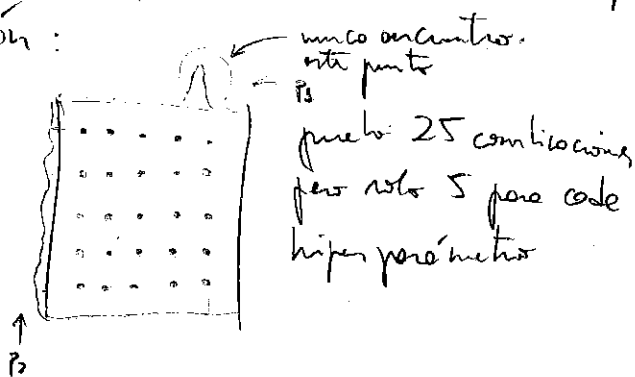 ón :
nunca encuentro.
este punto
P1
pruebo 25 combinaciones
pero solo 5 para cada
hiper parámetro
P2